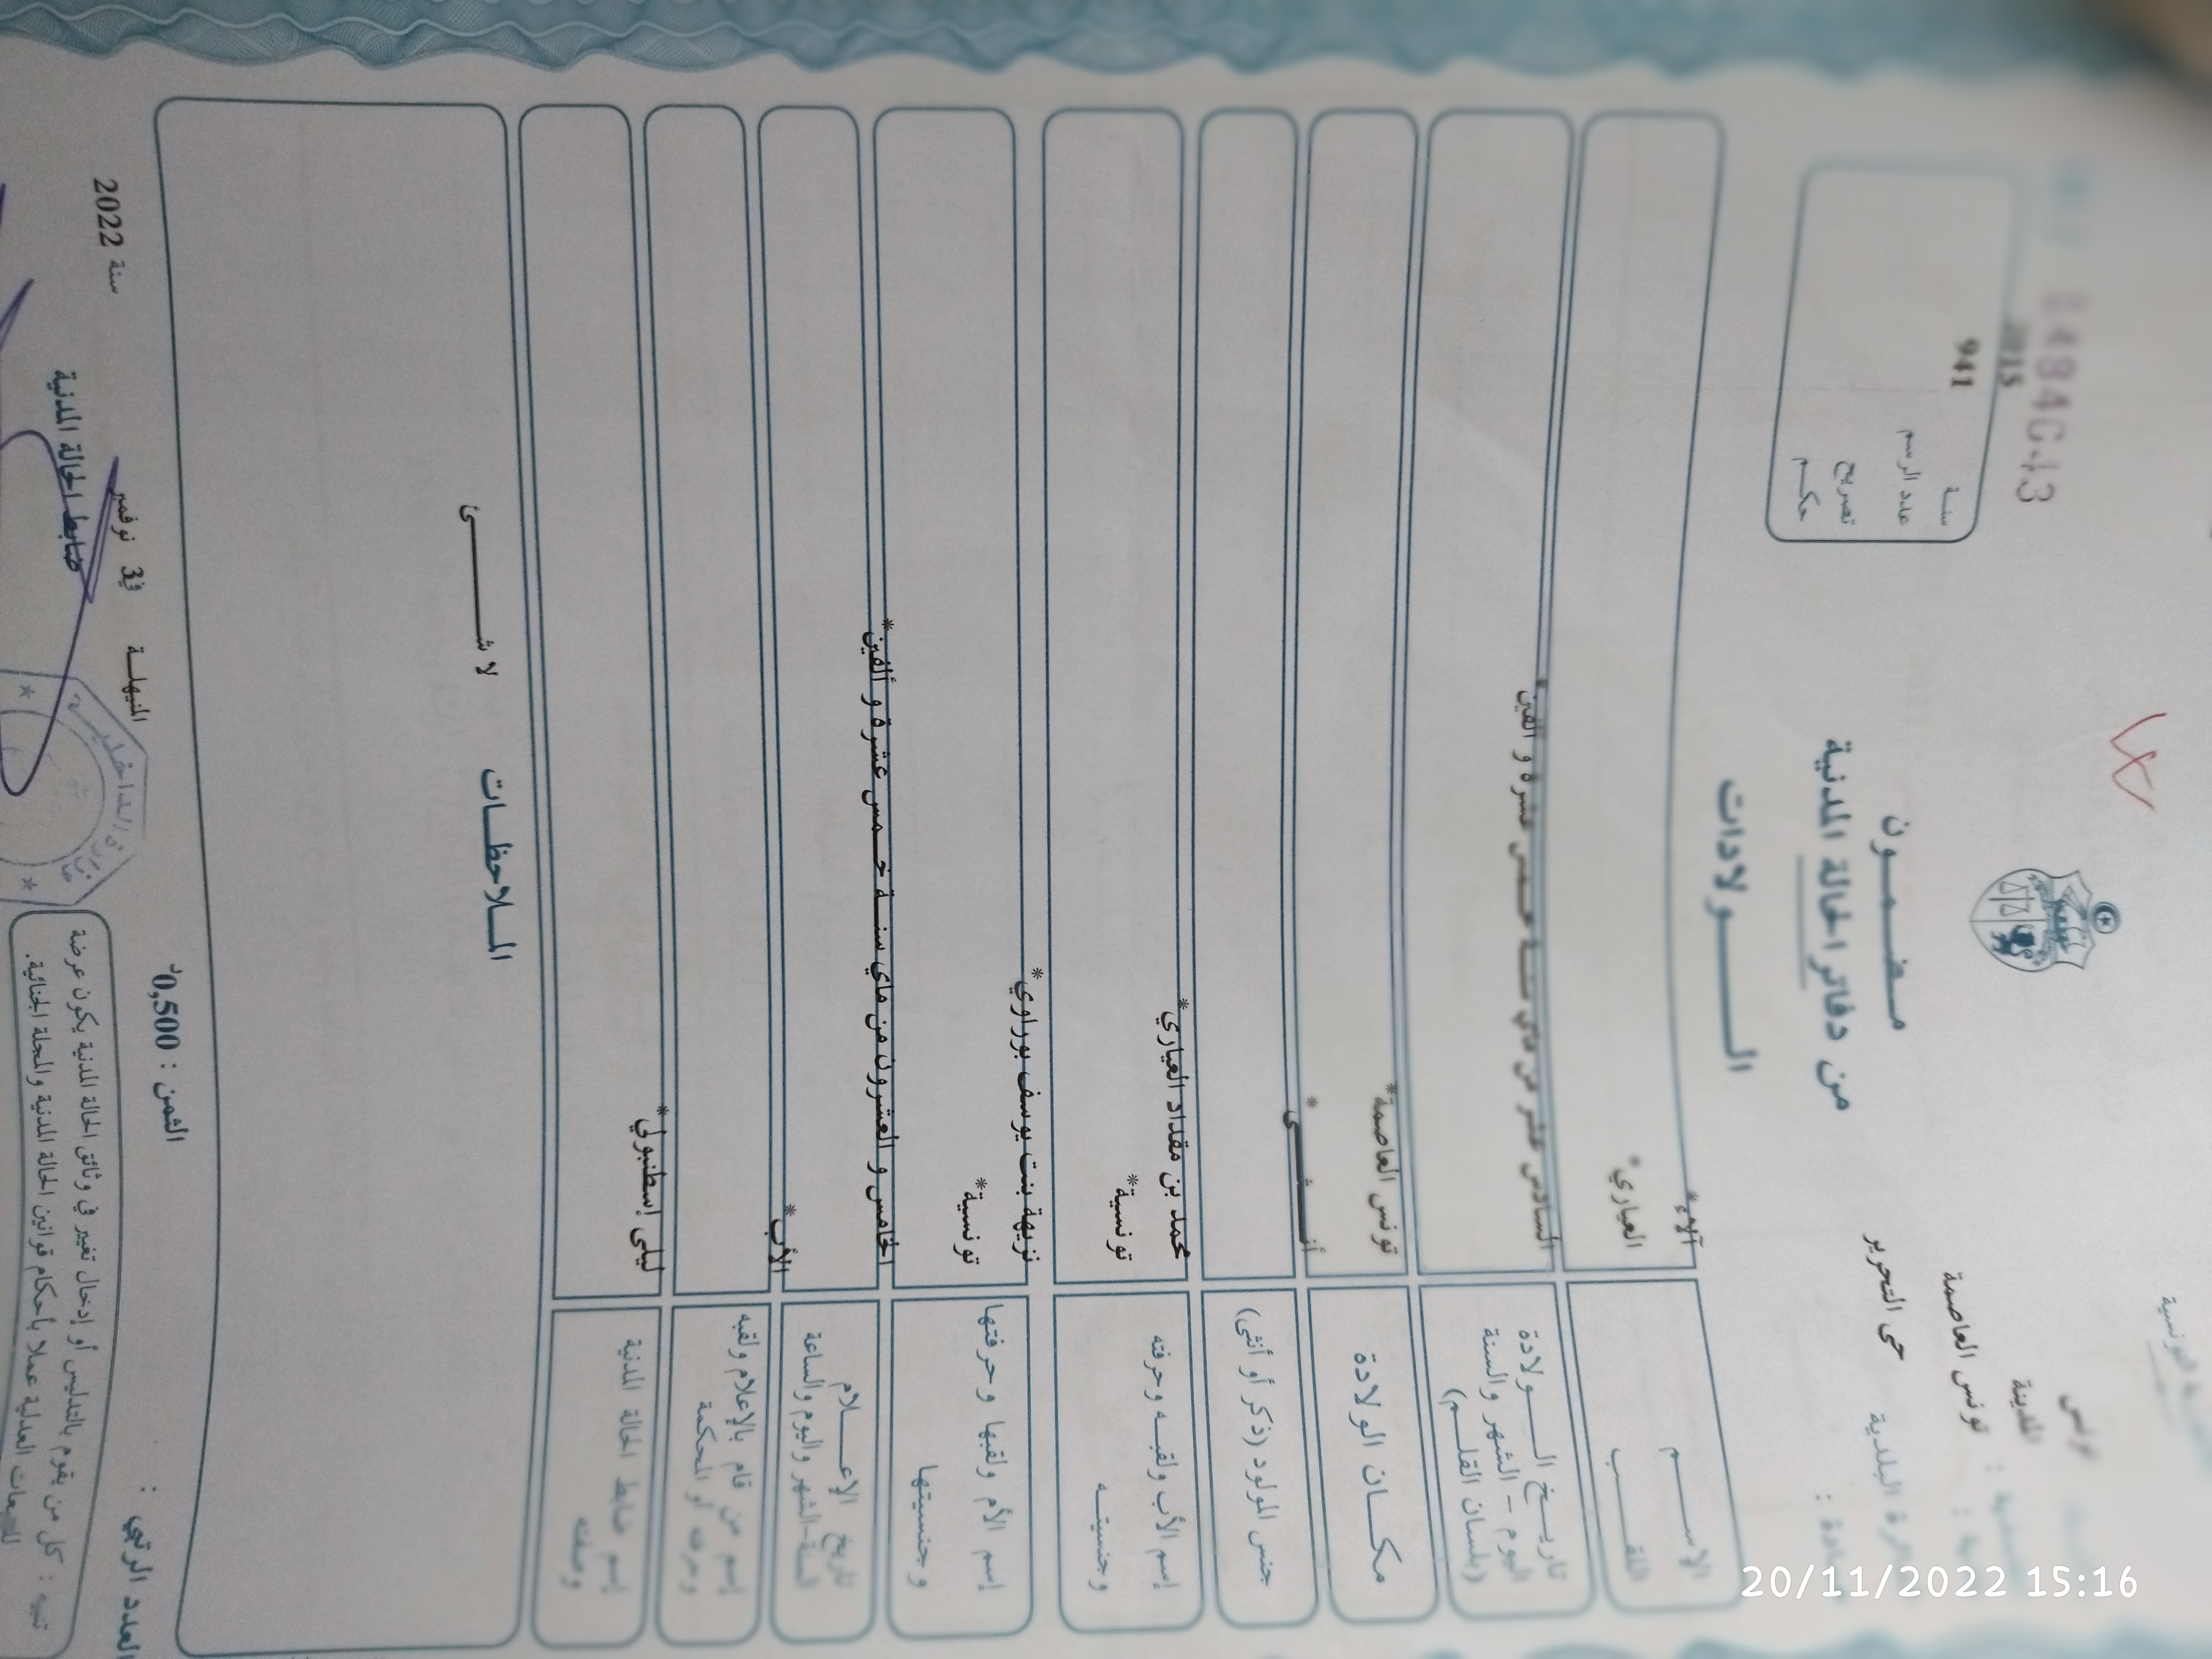 تونس
المدينة
تونس العاصمة
حي التحرير
البلدية
2015
سنة
941
عدد الرسم
تصريح
حكم
مضمون
من دفاتر الحالة المدنية
الولادات
الاسم
آلاء*
اللقب
العياري*
تاريخ الولادة
اليوم - الشهر والسنة
(بلسان القلم)
السادس عشر من ماي سنة خمس عشرة و ألفين*
مكان الولادة
تونس العاصمة*
جنس المولود (ذكر أو أنثى)
أنثى*
إسم الأب ولقبه وحرفته
وجنسيته
محمد بن مقداد العياري*
تونسية*
إسم الأم ولقبها وحرفتها
وجنسيتها
نزيهة بنت يوسف بوراوي*
تونسية*
تاريخ الإعلام
السنة-الشهر واليوم والساعة
الخامس و العشرون من ماي سنة خمس عشرة و ألفين*
إسم من قام بالإعلام ولقبه
وحرفته أو المحكمة
الأب*
إسم ضابط الحالة المدنية
وصفته
ليلى إسطنبولي*
الملاحظات
لا شئ
العدد الرتبي :
الثمن : 0,500د
المنيهلة في 3 نوفمبر سنة 2022
ضابط الحالة المدنية
وزارة الداخلية
تنبيه : كل من يقوم بالتدليس أو إدخال تغيير في وثائق الحالة المدنية يكون عرضة
للتبعات العدلية عملا بأحكام قوانين الحالة المدنية والمجلة الجنائية.
20/11/2022 15:16